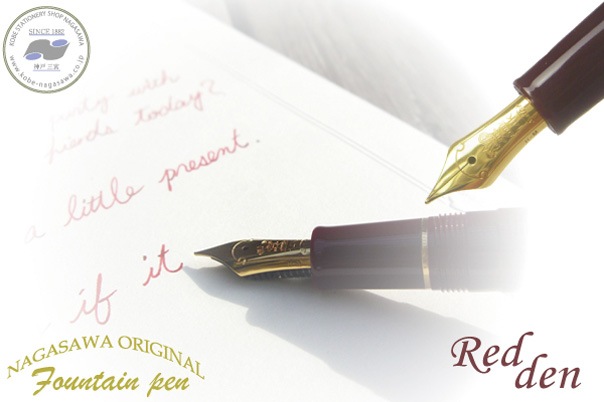 KOBE STATIONERY SHOP NAGASAWA
SINCE 1882
神戸 三宮
www.kobe-nagasawa.co.jp
with
today?
a little present.
if it
NAGASAWA ORIGINAL
Fountain pen
Red
den